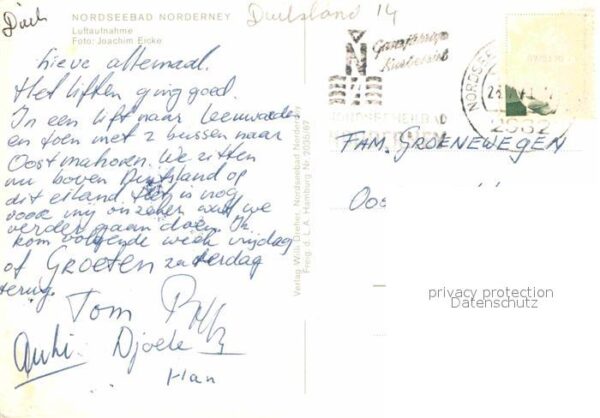 NORDSEEBAD NORDERNEY
Luftaufnahme
Foto: Joachim Eicke
Duitsland 14
Lieve allemaal.
Het liften ging goed.
In een lift naar Leeuwarden
en toen met 2 bussen naar
Oostmahorn. We zitten
nu boven Duitsland op
dit eiland. Het is nog
voor mij onzeker wat we
verder gaan doen. Ik
kom volgende week vrijdag
of GROETEN zaterdag
terug.
Tom
Djoeke
Han
Verlag Willi Dreher, Nordseebad Norderney
Freig. d. L. A. Hamburg Nr.
Ganzjährige
NORDSEEHEILBAD
NORDERNEY
2982
FAM. GROENEWEGEN
Oos
privacy protection
Datenschutz